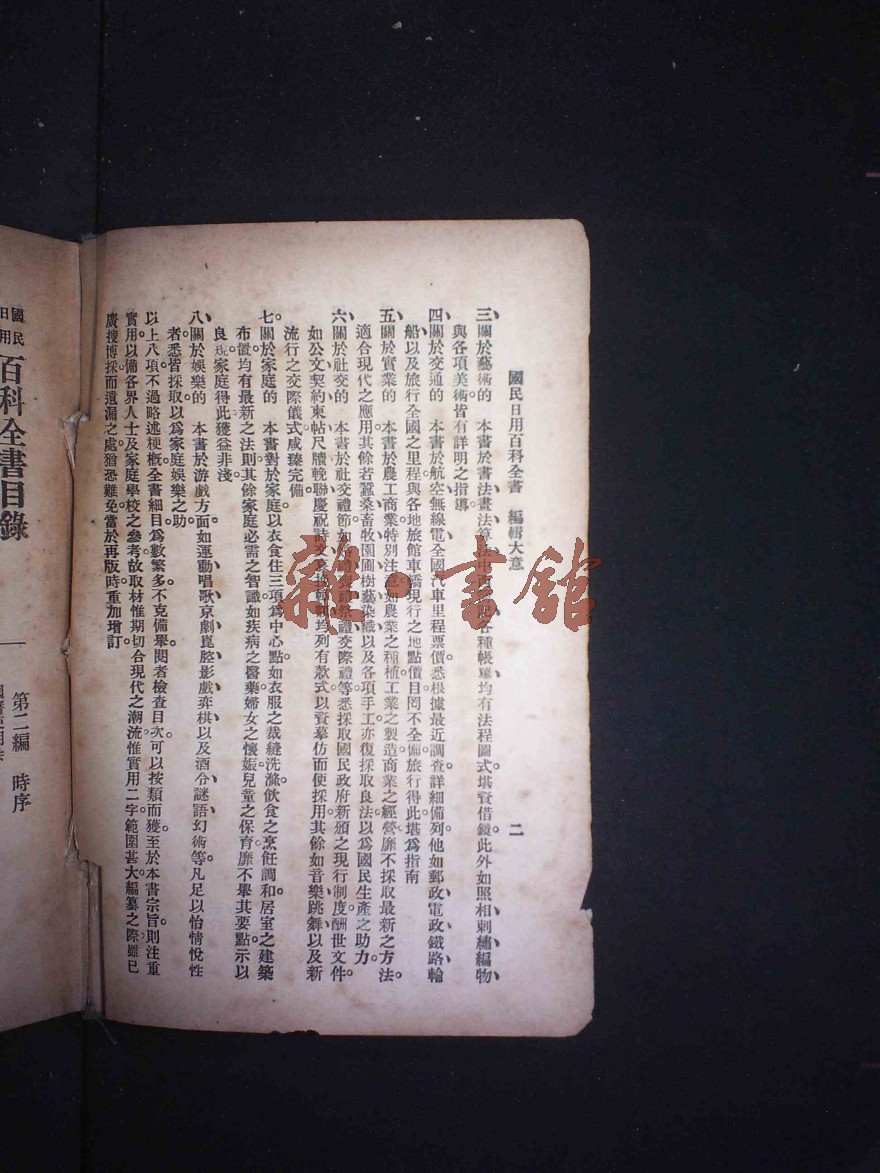 國民日用百科全書 編輯大意 二
三、關於藝術的 本書於書法畫法算法中西各種帳單均有法程圖式堪資借鏡此外如照相刺繡編物
與各項美術皆有詳明之指導
四、關於交通的 本書於航空無線電全國汽車里程票價悉根據最近調查詳細備列他如郵政電政鐵路輪
船以及旅行全國之里程與各地旅館車轎現行之地點價目罔不全備旅行得此堪為指南
五、關於實業的 本書於農工商業特別注意如農業之種植工業之製造商業之經營靡不採取最新之方法。
適合現代之應用其餘若蠶桑畜牧園圃樹藝染織以及各項手工亦復採取良法以為國民生產之助力。
六、關於社交的 本書於社交禮節如婚禮喪禮祭禮交際禮等悉採取國民政府新頒之現行制度酬世文件
如公文契約柬帖尺牘輓聯慶祝詩文均列有款式以資摹仿而便採用其餘如音樂跳舞以及新
流行之交際儀式咸臻完備。
七、關於家庭的 本書對於家庭以衣食住三項為中心點如衣服之裁縫洗滌飲食之烹飪調和居室之建築
布置均有最新之法則其餘家庭必需之智識如疾病之醫藥婦女之懷娠兒童之保育靡不舉其要點示以
良規家庭得此獲益非淺。
八、關於娛樂的 本書於游戲方面如運動唱歌京劇崑腔影戲弈棋以及酒令謎語幻術等凡足以怡情悅性
者悉皆採取以為家庭娛樂之助
以上八項不過略述梗概全書細目為數繁多不克備舉閱者檢查目次可以按類而獲至於本書宗旨則注重
實用以備各界人士及家庭學校之參考故取材惟期切合現代之潮流惟實用二字範圍甚大編纂之際雖已
廣搜博採而遺漏之處猶恐難免當於再版時重加增訂
國民日用百科全書目錄 一
第二編 時序
雜·書館